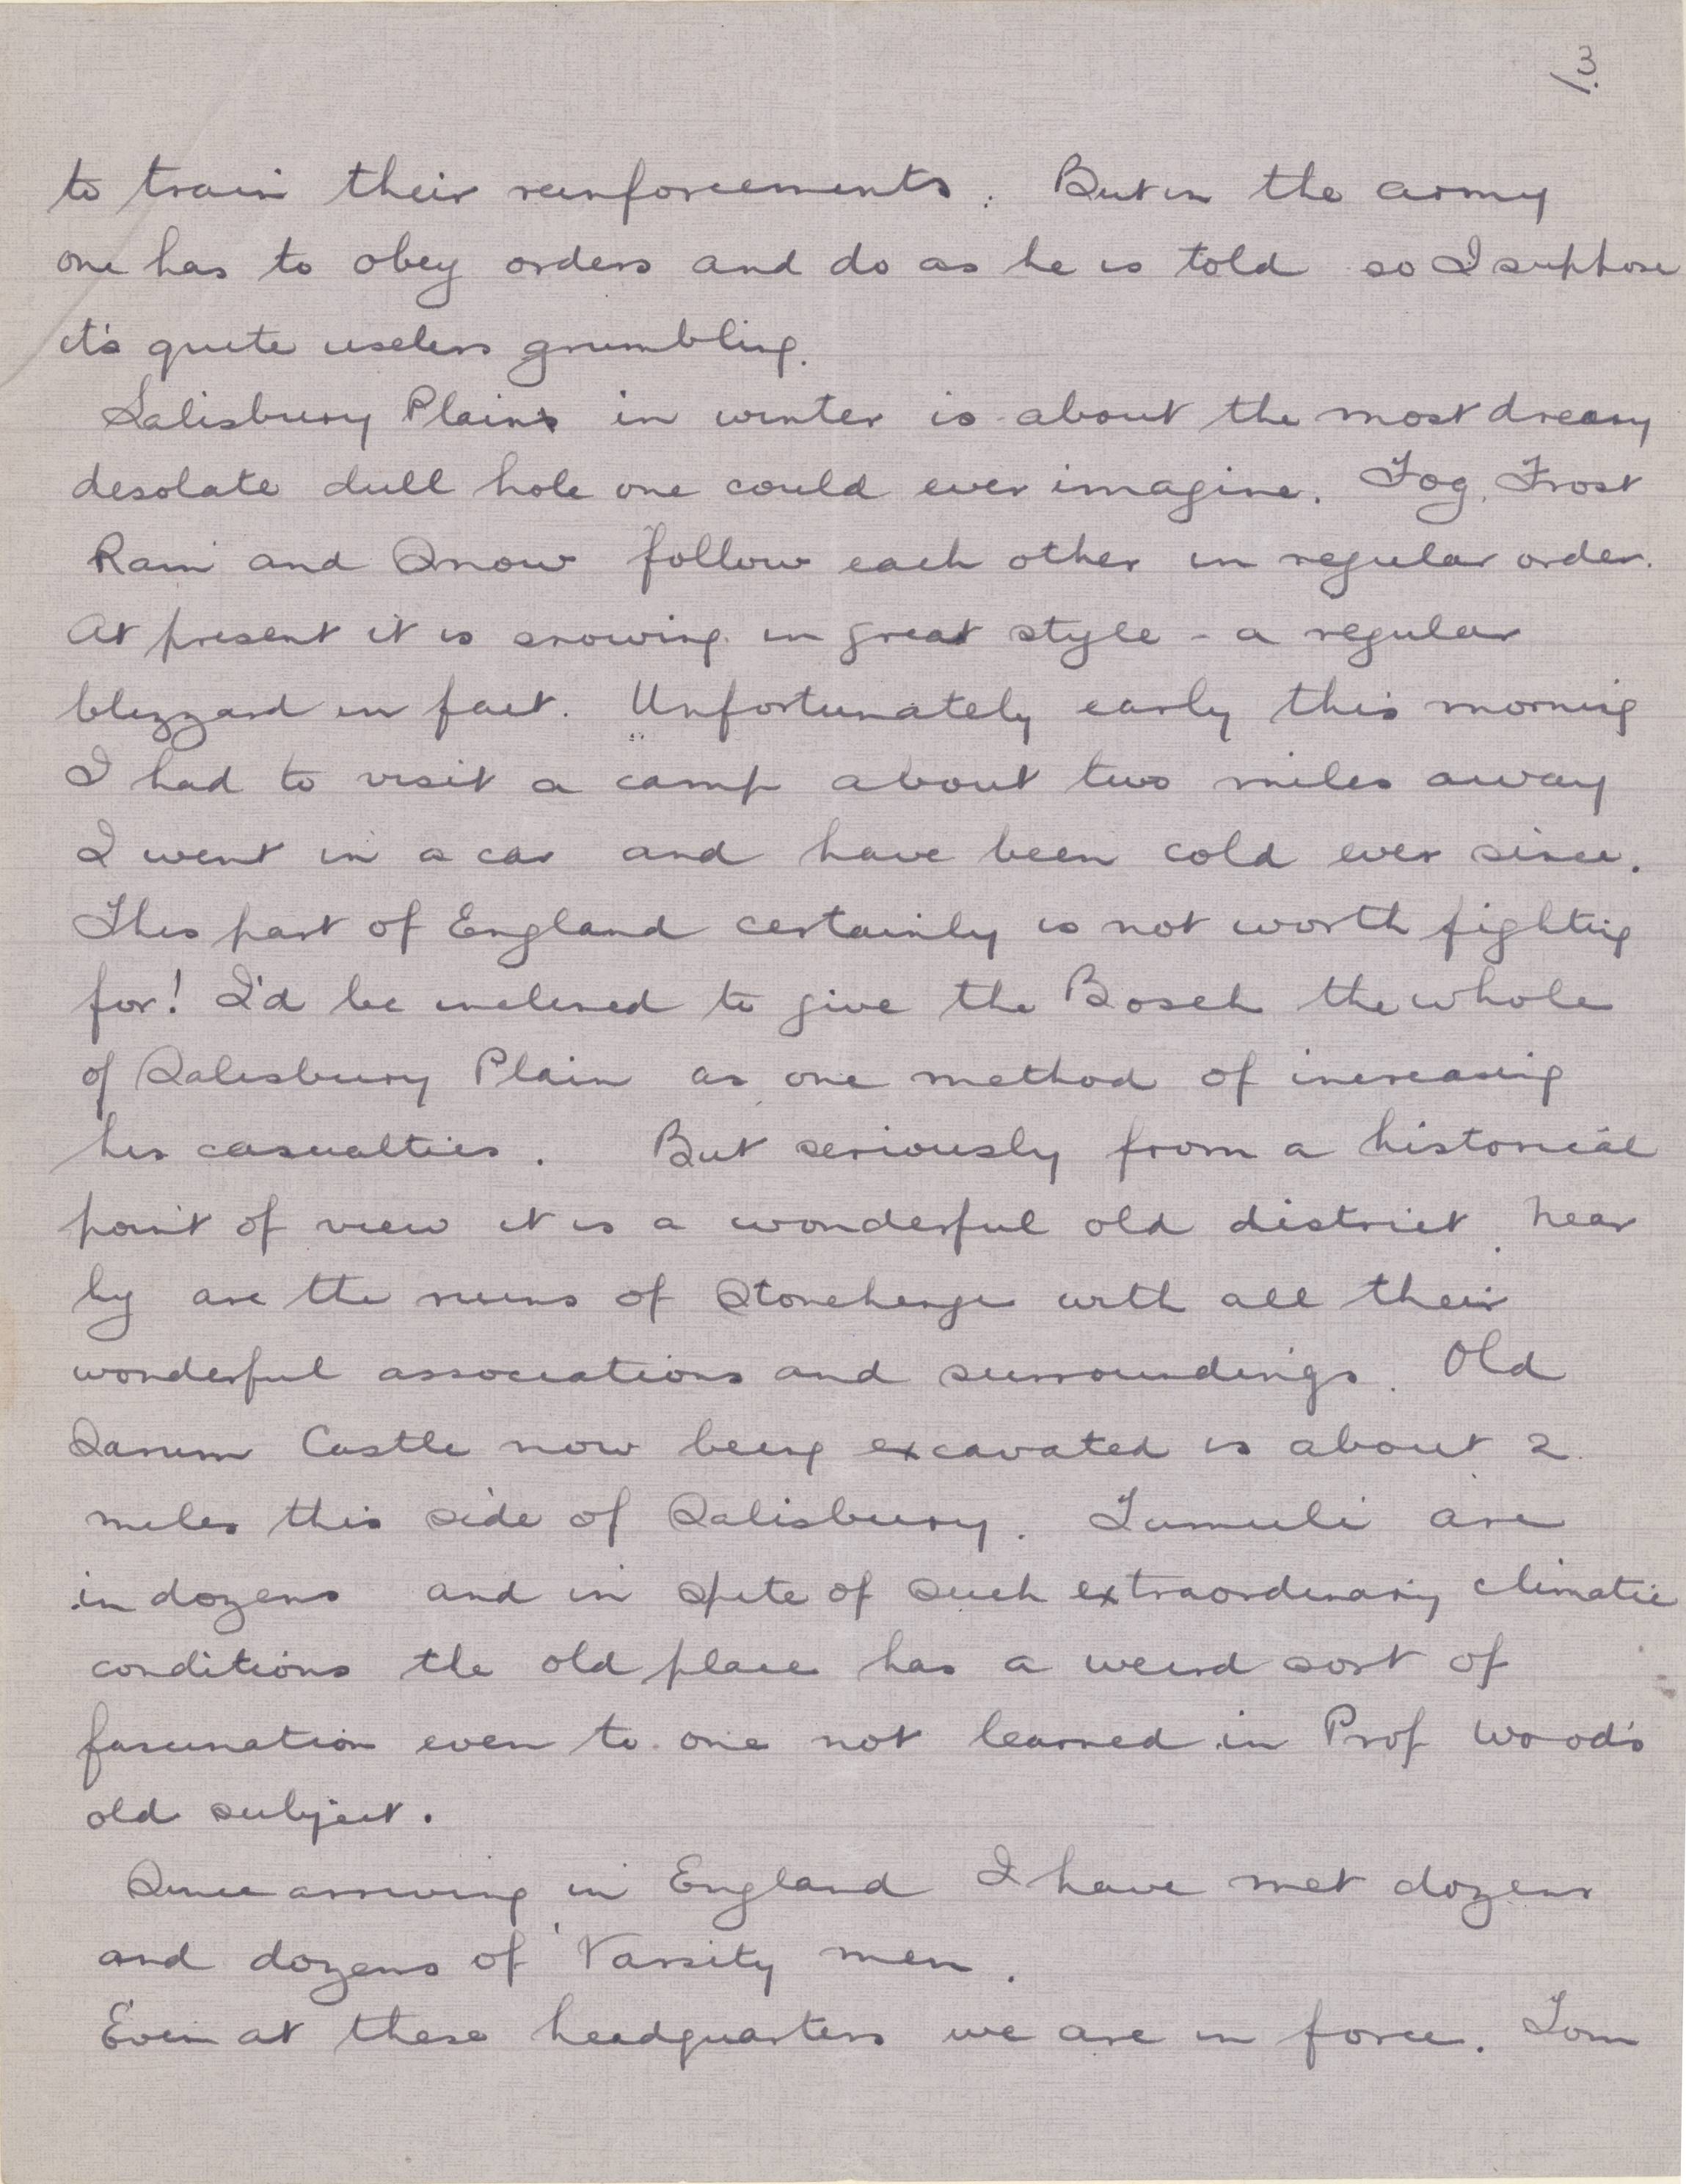 3.
to train their reinforcements. But in the army
one has to obey orders and do as he is told so I suppose
it's quite useless grumbling.
Salisbury Plains in winter is about the most dreary
desolate dull hole one could ever imagine. Fog, Frost
Rain and Snow follow each other in regular order.
At present it is snowing in great style - a regular
blizzard in fact. Unfortunately early this morning
I had to visit a camp about two miles away
I went in a car and have been cold ever since.
This part of England certainly is not worth fighting
for! I'd be inclined to give the Bosch the whole
of Salisbury Plain as one method of increasing
his casualties. But seriously from a historical
point of view it is a wonderful old district. Near
by are the ruins of Stonehenge with all their
wonderful associations and surroundings. Old
Sarum Castle now being excavated is about 2
miles this side of Salisbury. Tumuli are
in dozens and in spite of such extraordinary climatic
conditions the old place has a weird sort of
fascination even to one not learned in Prof Wood's
old subject.
Since arriving in England I have met dozens
and dozens of 'Varsity men.
Even at these headquarters we are in force. Tom